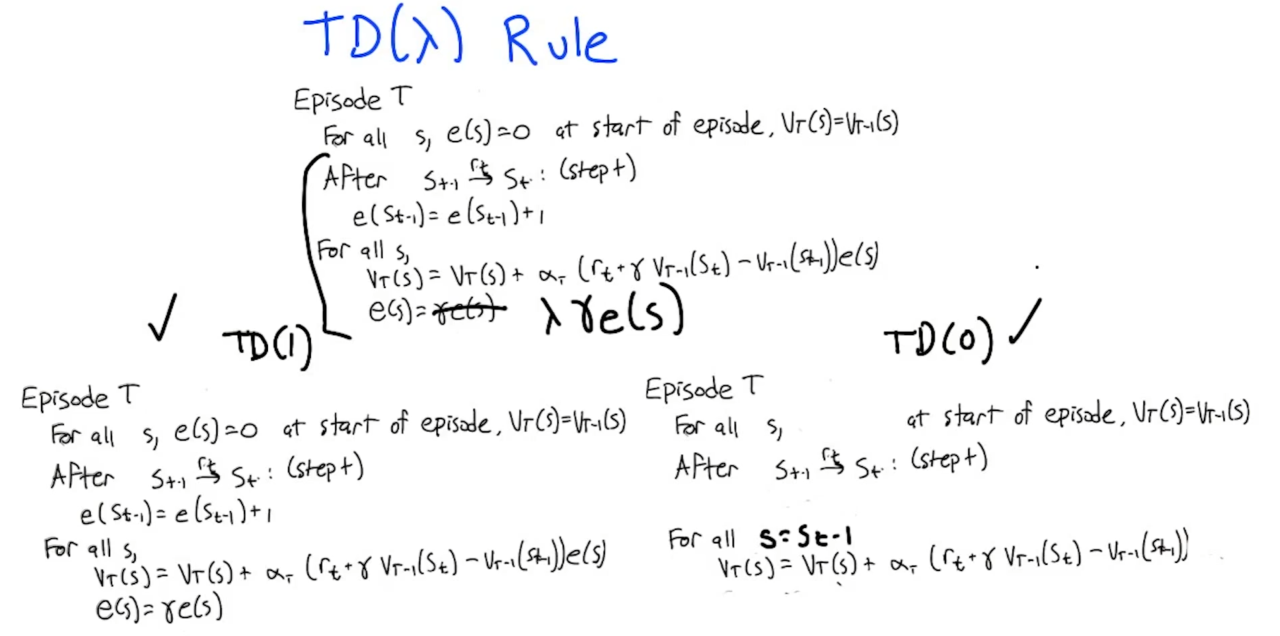 TD(λ) Rule
Episode T
For all s, e(s)=0 at start of episode, V_T(s)=V_{T-1}(s)
After S_{t-1} →^{r_t} S_t : (step t)
e(S_{t-1})=e(S_{t-1})+1
For all s,
V_T(s)=V_T(s)+ α_T (r_t+γ V_{T-1}(S_t)-V_{T-1}(S_{t-1}))e(s)
e(s)=γe(s) λγe(s)
✓ TD(1)
TD(0) ✓
Episode T
For all s, e(s)=0 at start of episode, V_T(s)=V_{T-1}(s)
After S_{t-1} →^{r_t} S_t : (step t)
e(S_{t-1})=e(S_{t-1})+1
For all s,
V_T(s)=V_T(s)+ α_T (r_t+γ V_{T-1}(S_t)-V_{T-1}(S_{t-1}))e(s)
e(s)=γe(s)
Episode T
For all s, at start of episode, V_T(s)=V_{T-1}(s)
After S_{t-1} →^{r_t} S_t : (step t)
For all s=S_{t-1}
V_T(s)=V_T(s)+ α_T (r_t+γ V_{T-1}(S_t)-V_{T-1}(S_{t-1}))